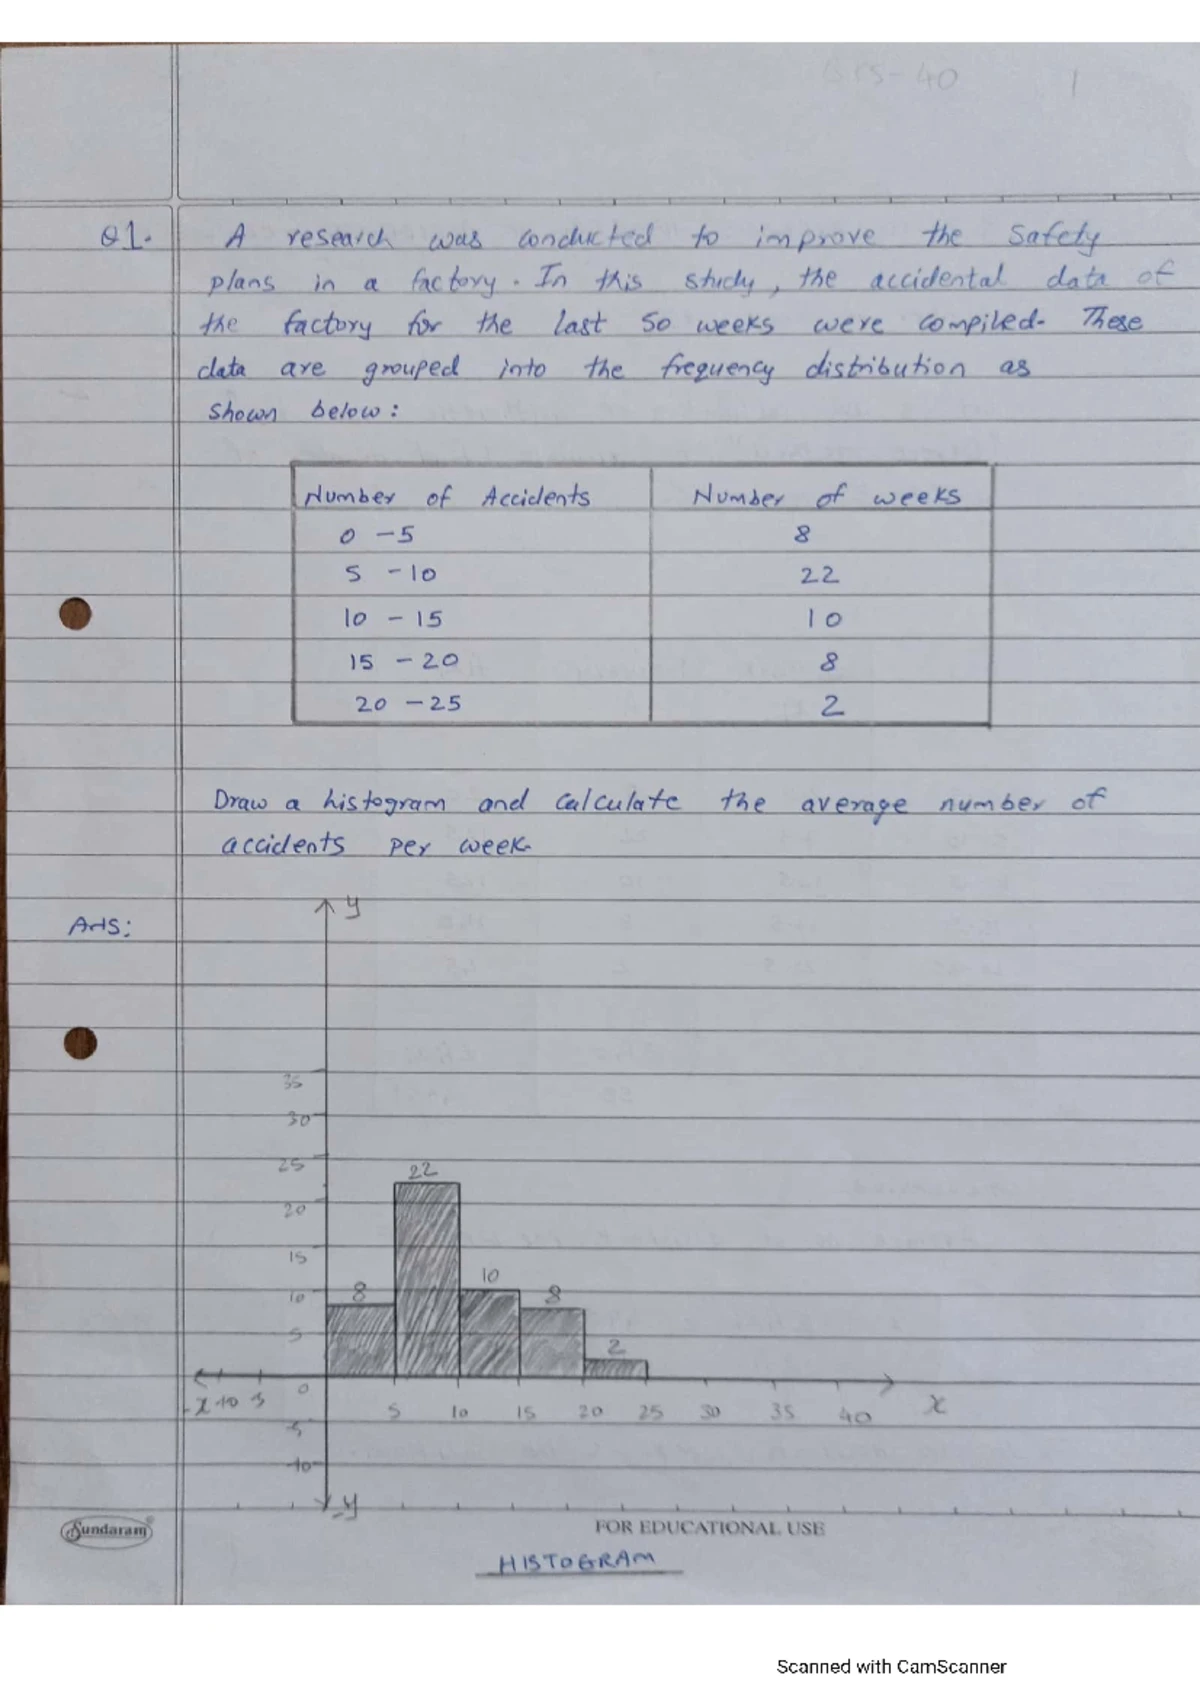 40 1
Q1. A research was conducted to improve the safety
plans in a factory. In this study, the accidental data of
the factory for the last 50 weeks were compiled. These
data are grouped into the frequency distribution as
shown below:
Number of Accidents Number of weeks
0 - 5 8
5 - 10 22
10 - 15 10
15 - 20 8
20 - 25 2
Draw a histogram and calculate the average number of
accidents per week.
Ans:
y
35
30
25
22
20
15
10
10 8 8
5
2
0
-x -10 5 5 10 15 20 25 30 35 40 x
-5
-10
-y
Sundaram
FOR EDUCATIONAL USE
HISTOGRAM
Scanned with CamScanner